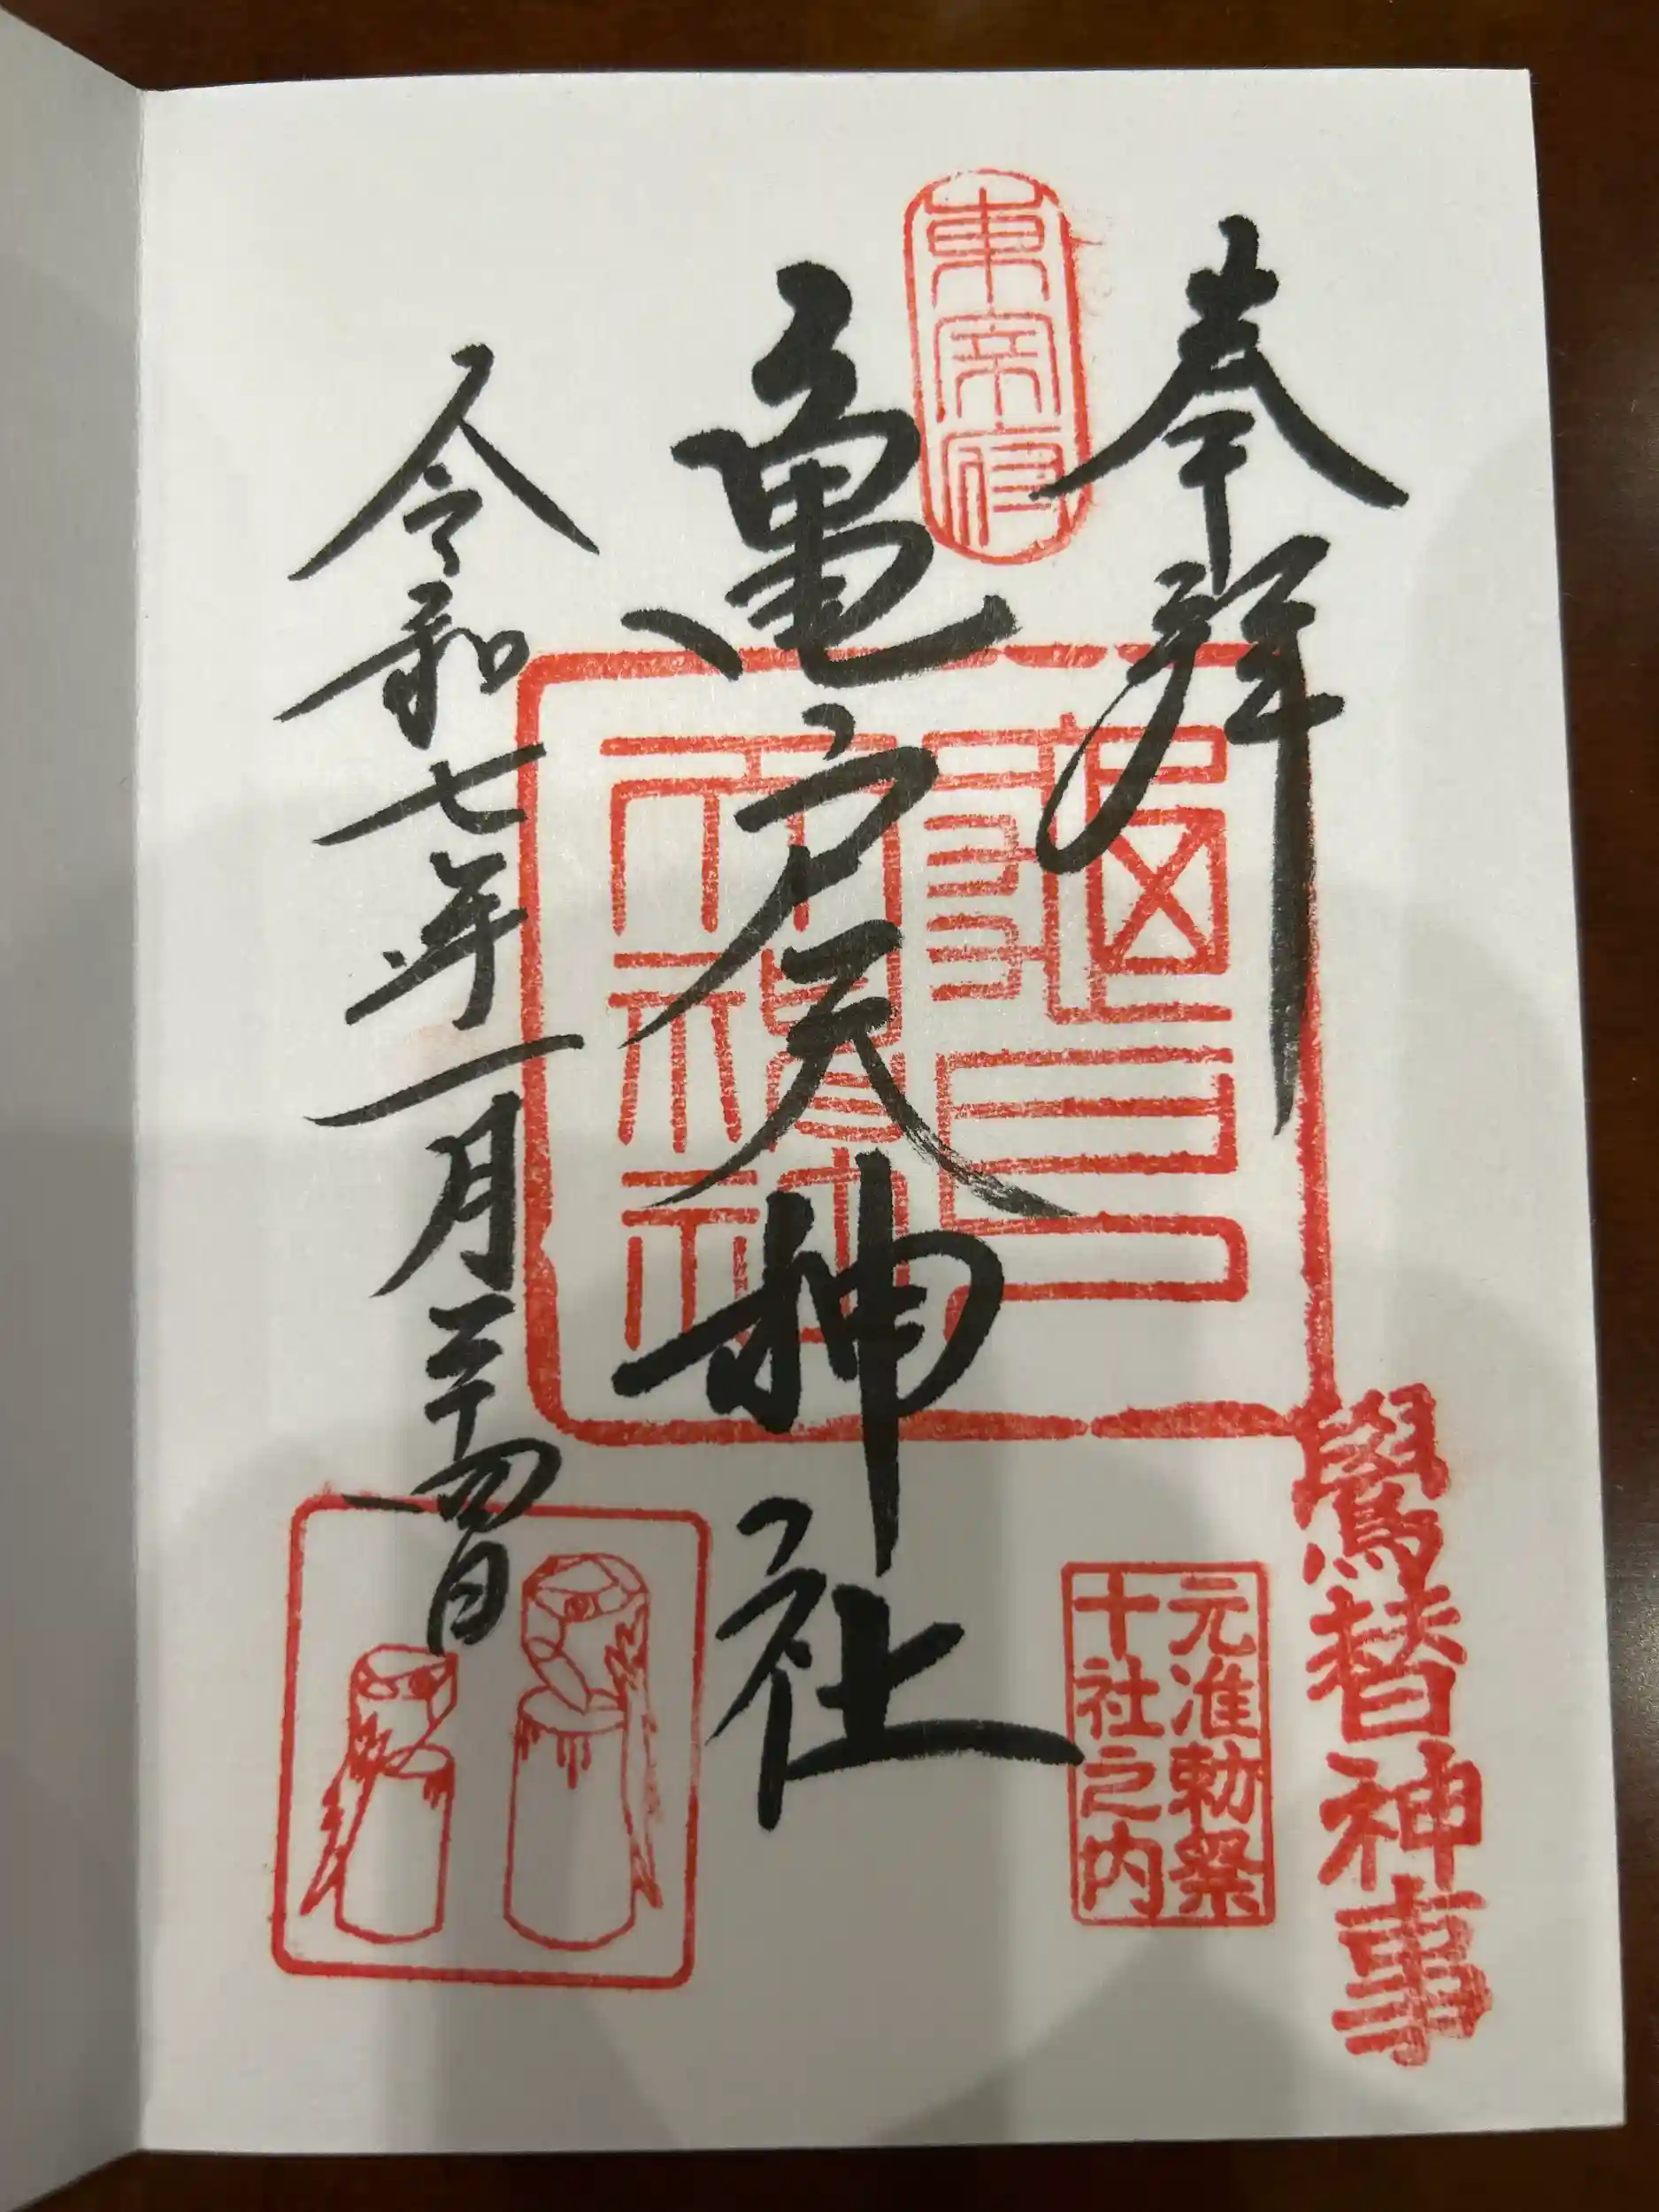 奉拝
鷽替神事
東宰府
亀戸天神社
元准勅祭
十社之内
令和七年一月二十四日